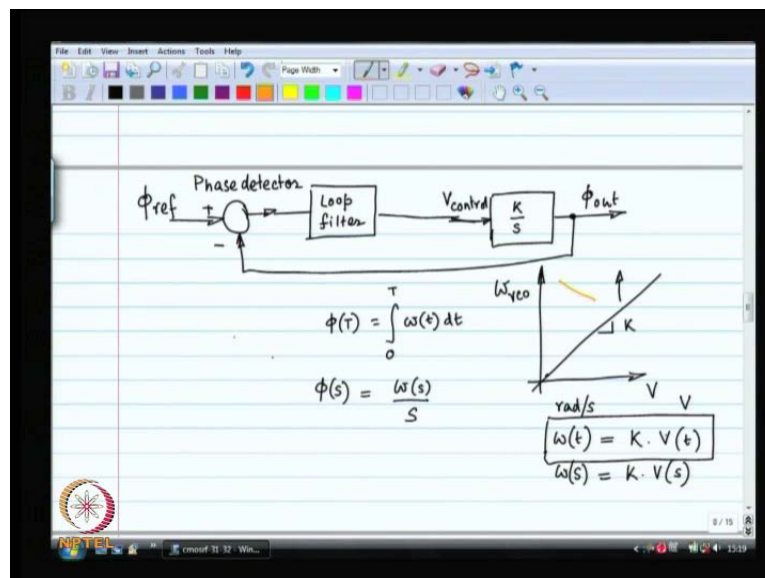 File Edit View Insert Actions Tools Help
Page Width
B I
Phase detector
ϕref + Loop filter Vcontrol K/S ϕout
−
ϕ(T) = ∫₀ᵀ ω(t) dt
ωvco
K
V
ϕ(s) = ω(s)/S
rad/s V
ω(t) = K . V(t)
ω(s) = K . V(s)
8 / 15
NPTEL
cmosrf-31-32 - Win...
15:19